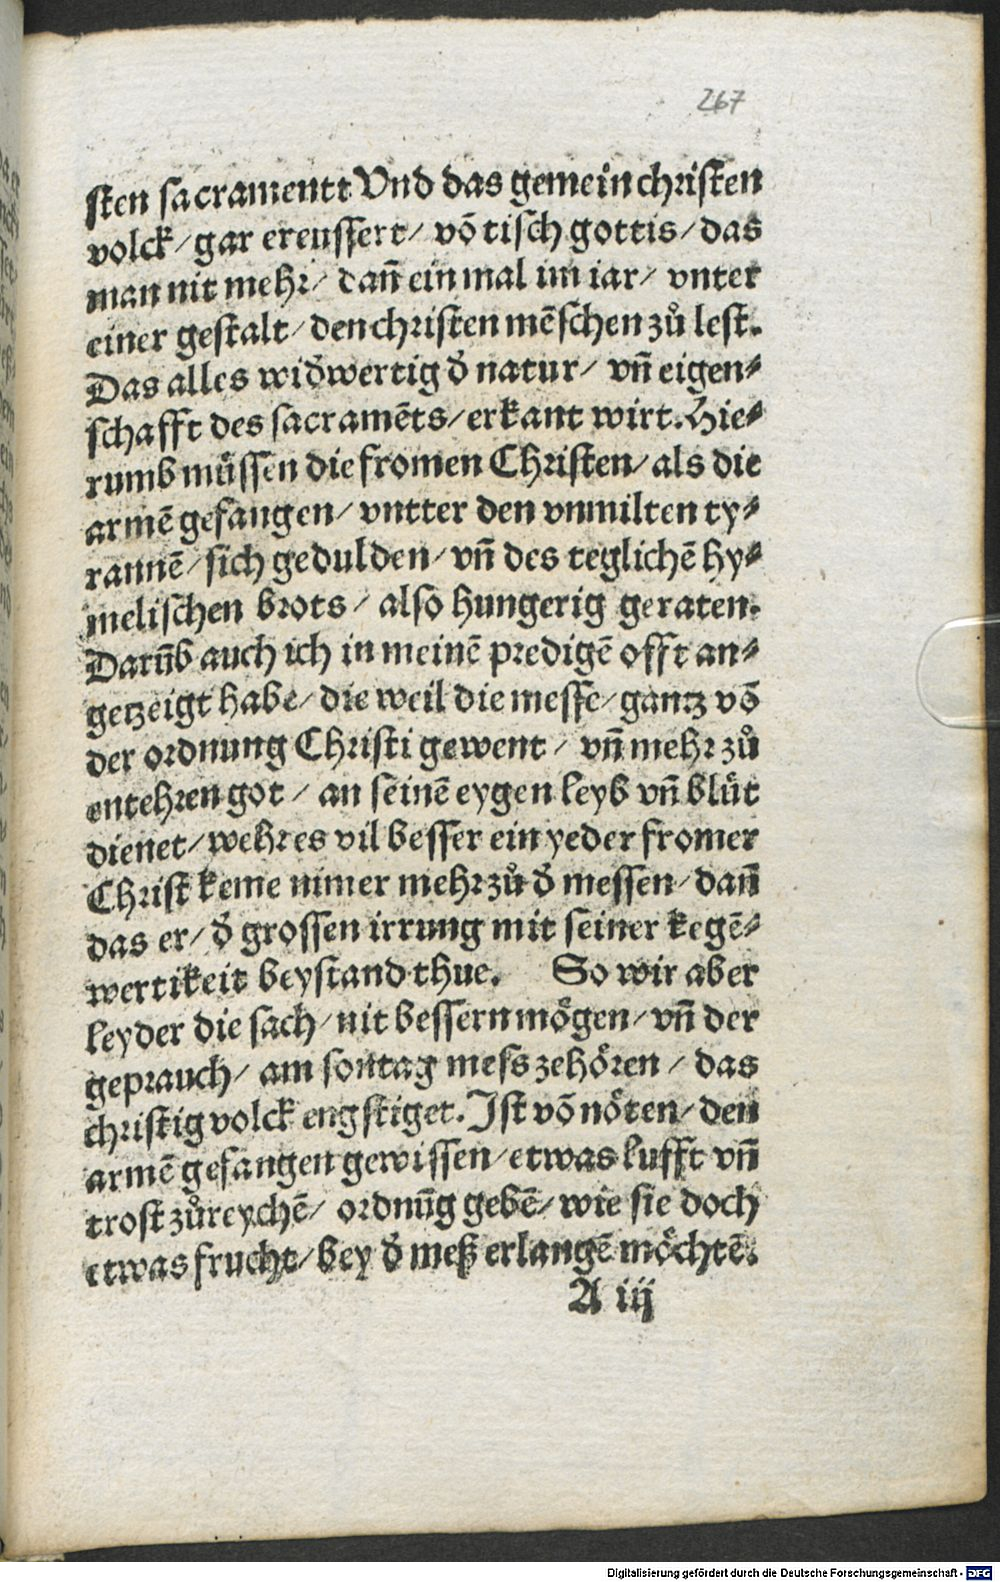 267
sten sacramentt Vnd das gemein christen
volck / gar ereussert / võ tisch gottis / das
man nit mehr / dañ ein mal im iar / vnter
einer gestalt / den christen mẽschen zů lest.
Das alles widʾwertig dʾ natur / vñ eigen⸗
schafft des sacramẽts / erkant wirt. Hie⸗
rumb müssen die fromen Christen / als die
armẽ gefangen / vntter den vnmilten ty⸗
rannẽ / sich gedulden / vñ des teglichẽ hy⸗
melischen brots / also hungerig geraten.
Darũb auch ich in meinẽ predigẽ offt an⸗
getzeigt habe / die weil die messe / gantz võ
der ordnung Christi gewent / vñ mehr zů
entehren got / an seinẽ eygen leyb vñ blůt
dienet / wehr es vil besser ein yeder fromer
Christ keme nimer mehr zů dʾ messen / dañ
das er / dʾ grossen irrung mit seiner kegẽ⸗
wertikeit beystand thue. So wir aber
leyder die sach / nit bessern mögen / vñ der
geprauch / am sontag mess zehören / das
christig volck engstiget. Ist võ nöten / den
armẽ gefangen gewissen / etwas lufft vñ
trost zůreychẽ / ordnũg gebẽ / wie sie doch
etwas frucht / bey dʾ meß erlangẽ möchtẽ.
A iij
Digitalisierung gefördert durch die Deutsche Forschungsgemeinschaft - DFG